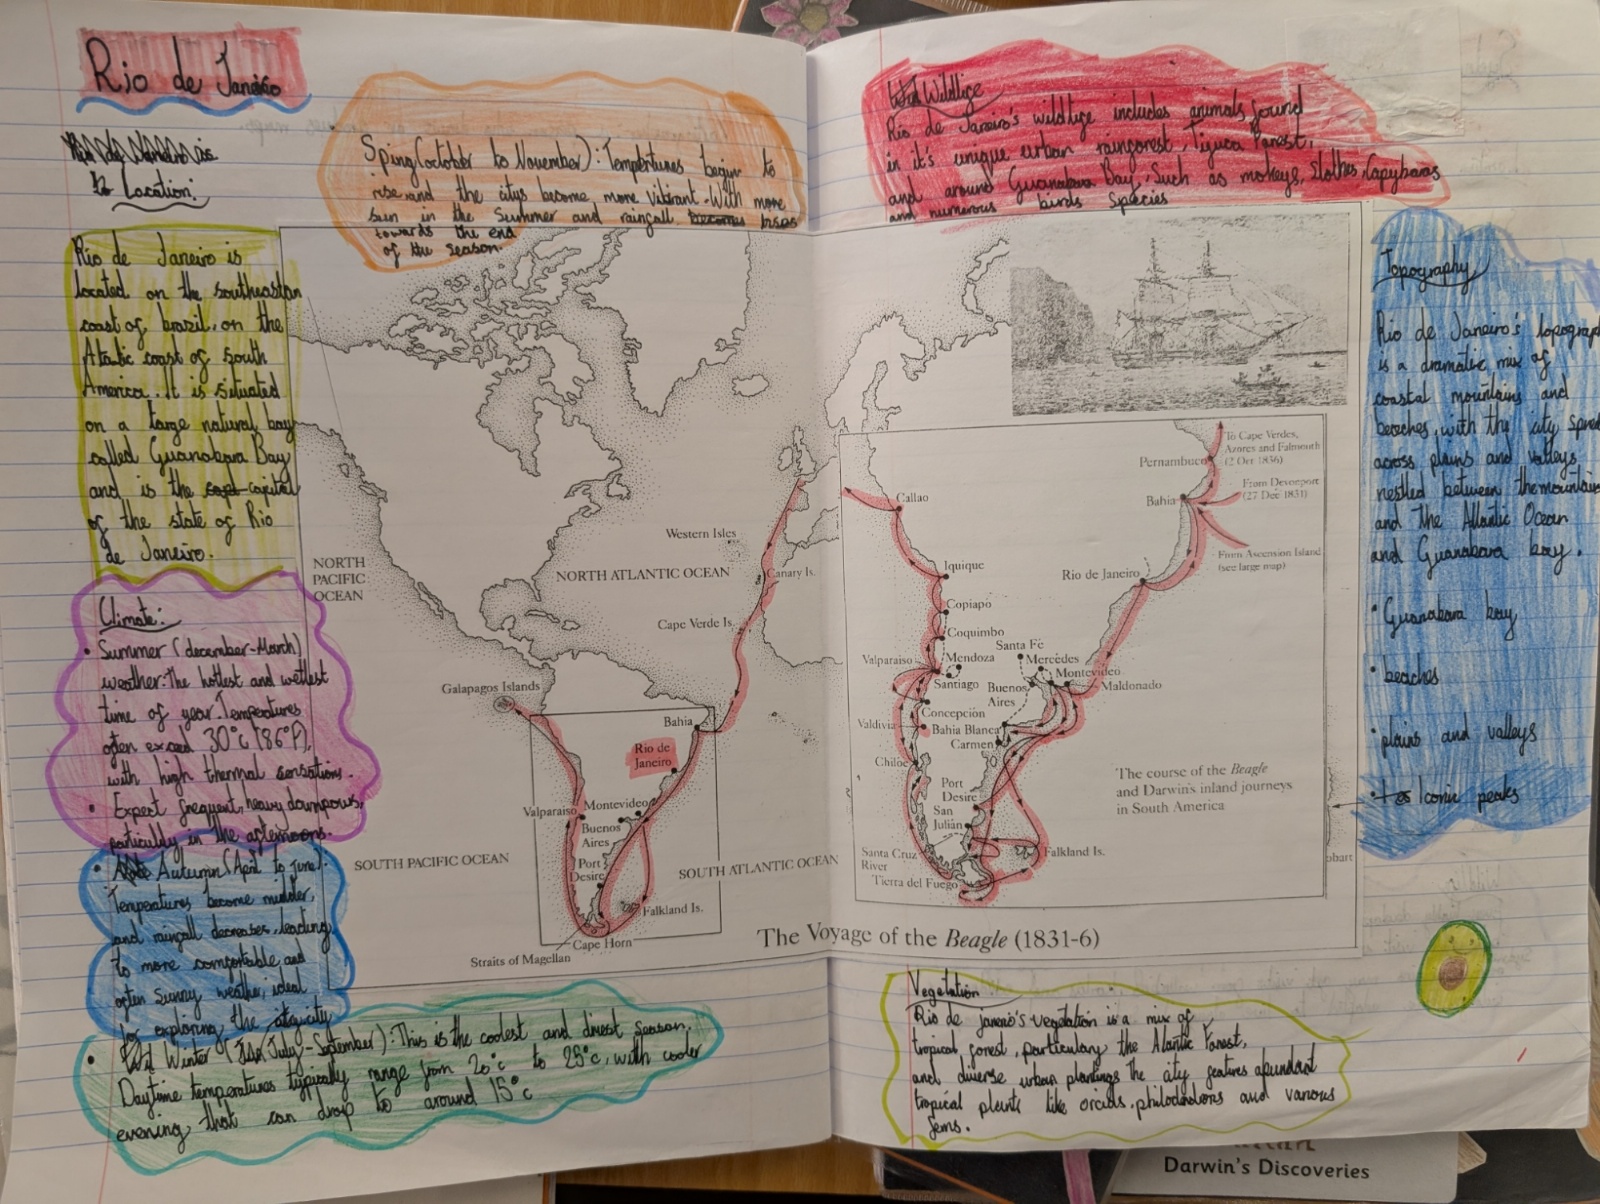 Rio de Janeiro
Location:
Rio de Janeiro is
located on the southeastan
coast of brazil, on the
Atlatic coast of South
America. It is situated
on a large natural bay
called Guanabara Bay
and is the capital
of the state of Rio
de Janeiro.
Climate:
• Summer (december-March)
weather: The hottest and wettest
time of year. Temperatures
often exceed 30°c (86°F),
with high thermal sensations.
• Expect frequent, heavy downpours,
particully in the afternoons.
• Autumn (April to june):
Temperatures become milder,
and rainfall decreases, leading
to more comfortable and
often sunny weather, ideal
for exploring the city
• Winter (July-September): This is the coolest and driest season.
Daytime temperatures typically range from 20°c to 25°c, with cooler
evening, that can drop to around 15°c
Sping (october to November): Tempertures begin to
rise and the citys become more vibrant. With more
sun in the Summer and raingall rises
towards the end
of the season.
Wildlife
Rio de Janeiro's wildlife includes animals found
in it's unique urban rainforest, Tijuca Forest,
and around Guanabara Bay, Such as mokeys, Slothes, Capybaras
and numerous birds Species
Topography
Rio de Janeiro's topograp
is a dramatic mix of
coastal mountains and
beaches, with the city spre
across plains and valleys
nestled between the mountain
and the Atlantic Ocean
and Guanabara bay.
• Guanabara bay
• beaches
• plains and valleys
• Iconic peaks
NORTH
PACIFIC
OCEAN
NORTH ATLANTIC OCEAN
Western Isles
Canary Is.
Cape Verde Is.
Galapagos Islands
Bahia
Rio de
Janeiro
Valparaiso
Montevideo
Buenos
Aires
Port
Desire
SOUTH PACIFIC OCEAN
SOUTH ATLANTIC OCEAN
Falkland Is.
Cape Horn
Straits of Magellan
To Cape Verdes,
Azores and Falmouth
(2 Oct 1836)
Pernambuco
From Devonport
(27 Dec 1831)
Bahia
From Ascension Island
(see large map)
Callao
Rio de Janeiro
Iquique
Copiapo
Coquimbo
Santa Fé
Valparaiso
Mendoza
Mercedes
Santiago
Montevideo
Buenos
Aires
Maldonado
Concepción
Valdivia
Bahia Blanca
Carmen
Chiloe
Port
Desire
San
Julian
The course of the Beagle
and Darwin's inland journeys
in South America
Santa Cruz
River
Falkland Is.
Tierra del Fuego
obart
The Voyage of the Beagle (1831-6)
Vegetation
Rio de janeiro's vegetation is a mix of
tropical forest, particulary the Alantic Forest,
and diverse urban plantings the city features abundant
tropical plants like orcids, philodendrons and various
ferns.
Darwin's Discoveries